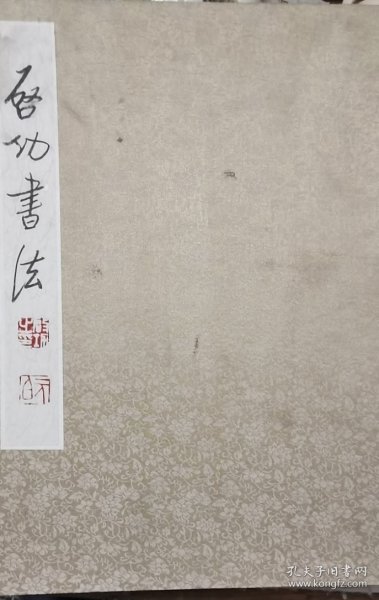 启功书法
孔夫子旧书网
www.kongfz.com